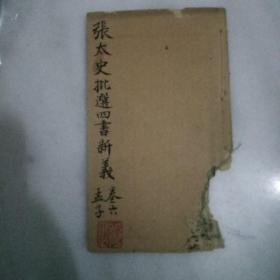 張太史批選四書新義
卷六
孟子